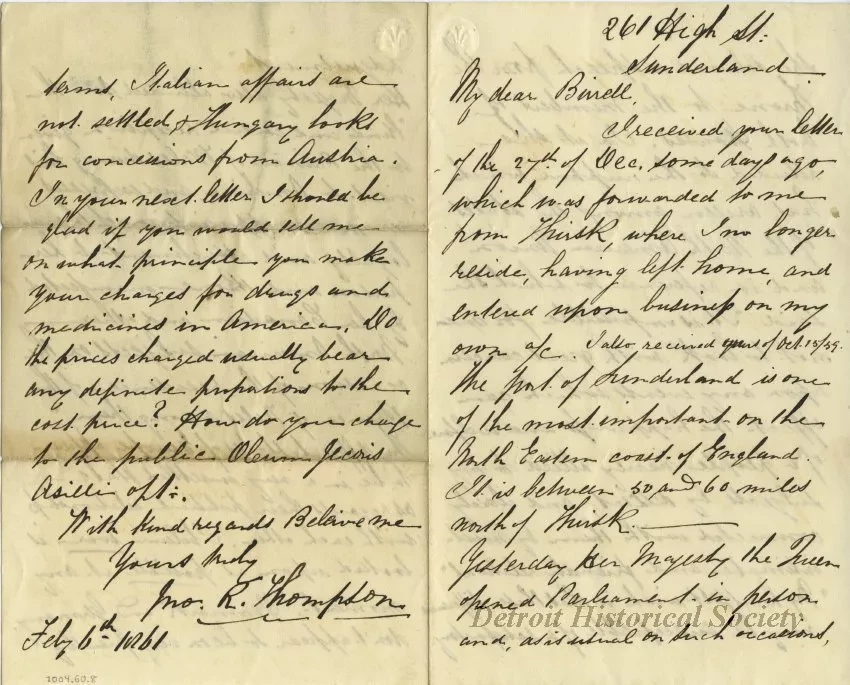 261 High St:
Sunderland
My dear Birrell,
I received your letter
of the 27th of Dec. some days ago,
which was forwarded to me
from Thirsk, where I no longer
reside, having left home, and
entered upon business on my
own a/c. I also received yours of Oct. 15/59.
The port of Sunderland is one
of the most important on the
North Eastern coast of England.
It is between 50 and 60 miles
north of Thirsk.
Yesterday Her Majesty the Queen
opened Parliament in person
and, as is usual on such occasions,
terms, Italian affairs are
not settled & Hungary looks
for concessions from Austria.
In your next letter I should be
glad if you would tell me
on what principle you make
your charges for drugs and
medicines in America. Do
the prices charged usually bear
any definite proportions to the
cost price? How do you charge
to the public Oleum Jecoris
Aselli opt:.
With kind regards Believe me
Yours truly
Jno. R. Thompson
Feby 6th 1861
Detroit Historical Society
2009.60.8